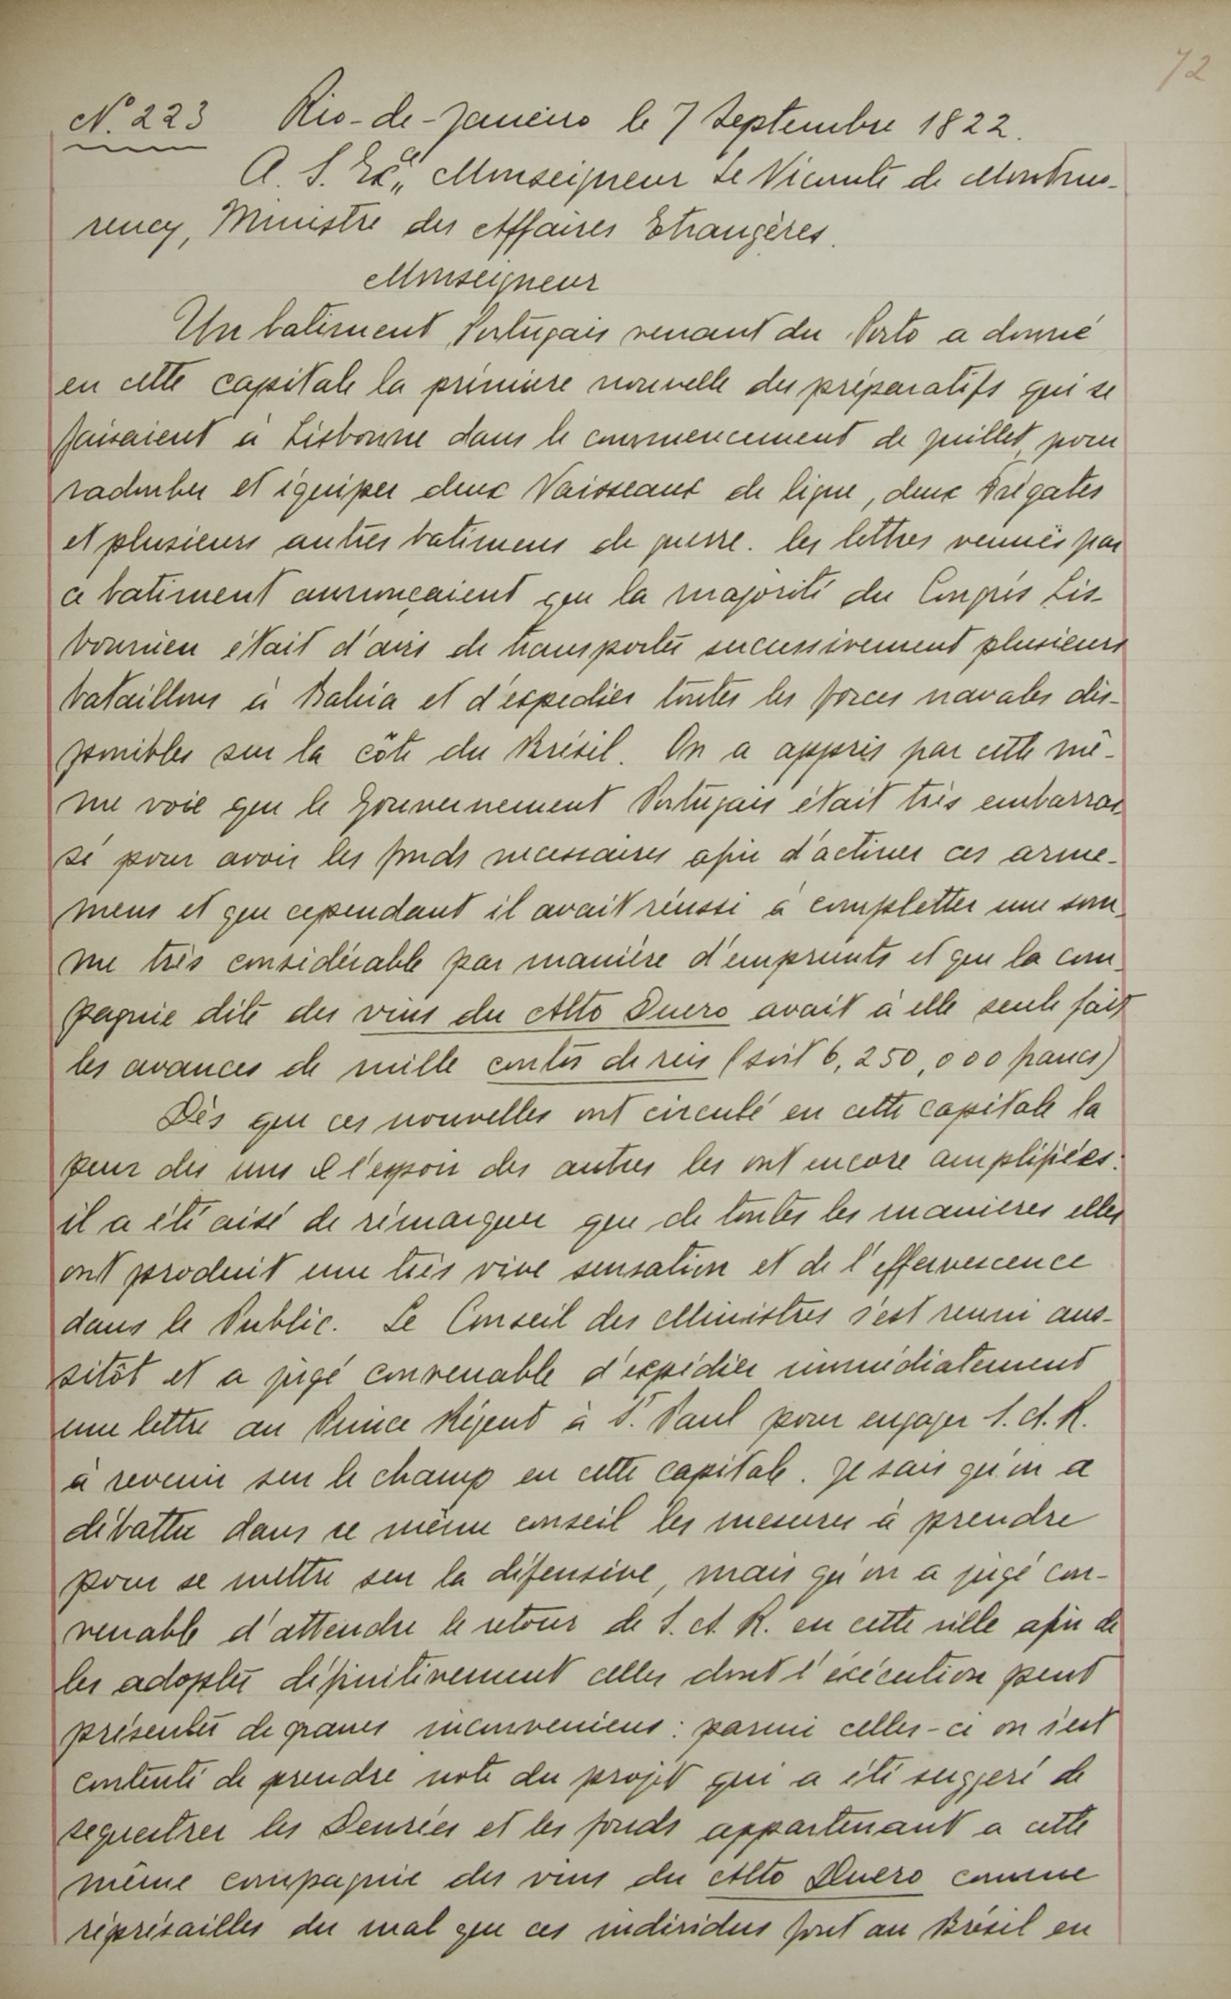 72
N.º 223 Rio-de-Janeiro le 7 Septembre 1822.
A. S. Exce„ Monseigneur Le Vicomte de Montmo-
rency, Ministre des Affaires Etrangères.
Monseigneur
Un batiment Portugais venant du Porto a donné
en cette capitale la prémiere nouvelle des préparatifs qui se
faisaient à Lisbonne dans le commencement de juillet, pour
radouber et équiper deux Vaisseaux de ligne, deux Frégates
et plusieurs autres batimens de guerre. les lettres venués par
ce batiment annonçaient que la majorité du Congrès Lis-
bonnien était d'avis de transporter successivement plusieurs
bataillons à Bahia et d'expedier toutes les forces navales dis-
ponibles sur la côte du Brésil. On a appris par cette mê-
me voie que le Gouvernement Portugais était très embarras
sé pour avoir les fonds necessaires afin d'activer ces arme-
mens et que cependant il avait réussi à completter une som-
me très considérable par manière d'emprunts et que la com-
pagnie dite des vins du Alto Duero avait à elle seule fait
les avances de mille contos de reis (soit 6,250,000 francs)
Dès que ces nouvelles ont circulé en cette capitale la
peur des uns et l'espoir des autres les ont encore amplifiées:
il a été aisé de rémarquer que de toutes les manieres elles
ont produit une très vive sensation et de l'effervescence
dans le Public. Le Conseil des Ministres s'est reuni aus-
sitôt et a jugé convenable d'expédier immédiatement
une lettre au Prince Régent à S. Paul pour engager S. A. R.
à revenir sur le champ en cette capitale. Je sais qu'on a
débattu dans ce même conseil les mesures à prendre
pour se mettre sur la défensive, mais qu'on a jugé con-
venable d'attendre le retour de S. A. R. en cette ville afin de
les adopter définitivement celles dont l'exécution peut
présenter de graves inconveniens: parmi celles-ci on s'est
contenté de prendre note du projet qui a été suggeré de
sequestrer les Denrées et les fonds appartenant a cette
même compagnie des vins du Alto Duero comme
réprésailles du mal que ces individus font au Brésil en